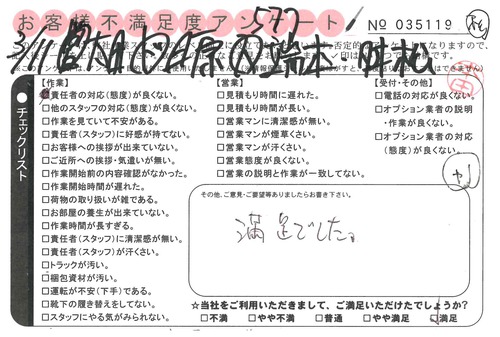 お客様不満足度アンケート
577
No 035110
【作業】
□責任者の対応(態度)が良くない。
□他のスタッフの対応(態度)が良くない。
□作業を見ていて不安がある。
□責任者(スタッフ)に好感が持てない。
□お客様への挨拶が出来ていない。
□ご近所への挨拶・気遣いが無い。
□作業開始前の内容確認がなかった。
□作業開始時間が遅れた。
□荷物の取り扱いが雑である。
□お部屋の養生が出来ていない。
□作業時間が長すぎる。
□責任者(スタッフ)に清潔感が無い。
□責任者(スタッフ)が汗くさい。
□トラックが汚い。
□梱包資材が汚い。
□運転が不安(下手)である。
□靴下の履き替えをしてない。
□スタッフにやる気がみられない。
【営業】
□見積もり時間に遅れた。
□見積もり時間が長い。
□営業マンに清潔感が無い。
□営業マンが煙草くさい。
□営業マンが汗くさい。
□営業態度が良くない。
□営業の説明と作業が一致してない。
【受付・その他】
□電話の対応が良くない。
□オプション業者の説明
・作業が良くない。
□オプション業者の対応
(態度)が良くない。
その他、ご意見・ご要望等ありましたらお書き下さい。
満足でした。
☆当社をご利用いただきまして、ご満足いただけたでしょうか?
□不満 □やや不満 □普通 □やや満足 □満足
チェックリスト